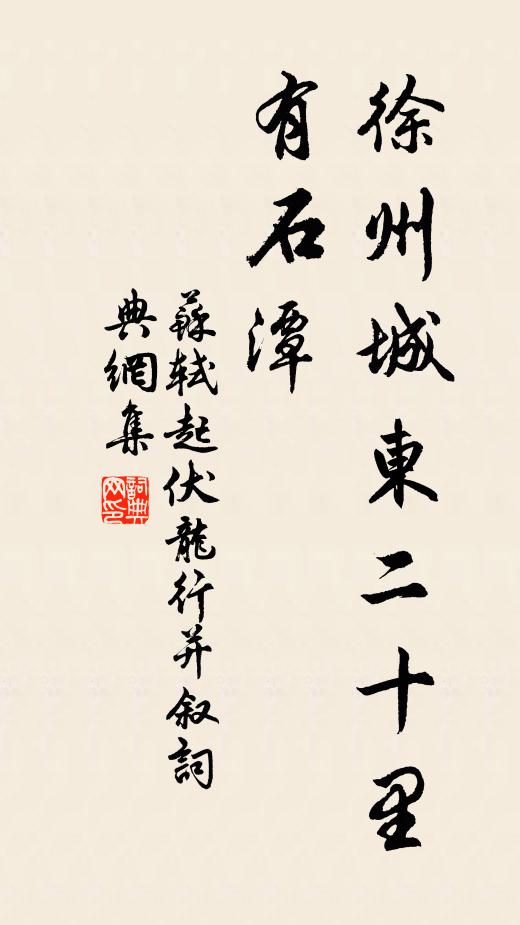 徐州城東二十里
有石潭
蘇軾起伏龍行并叙詞
典網集
詞典
网印